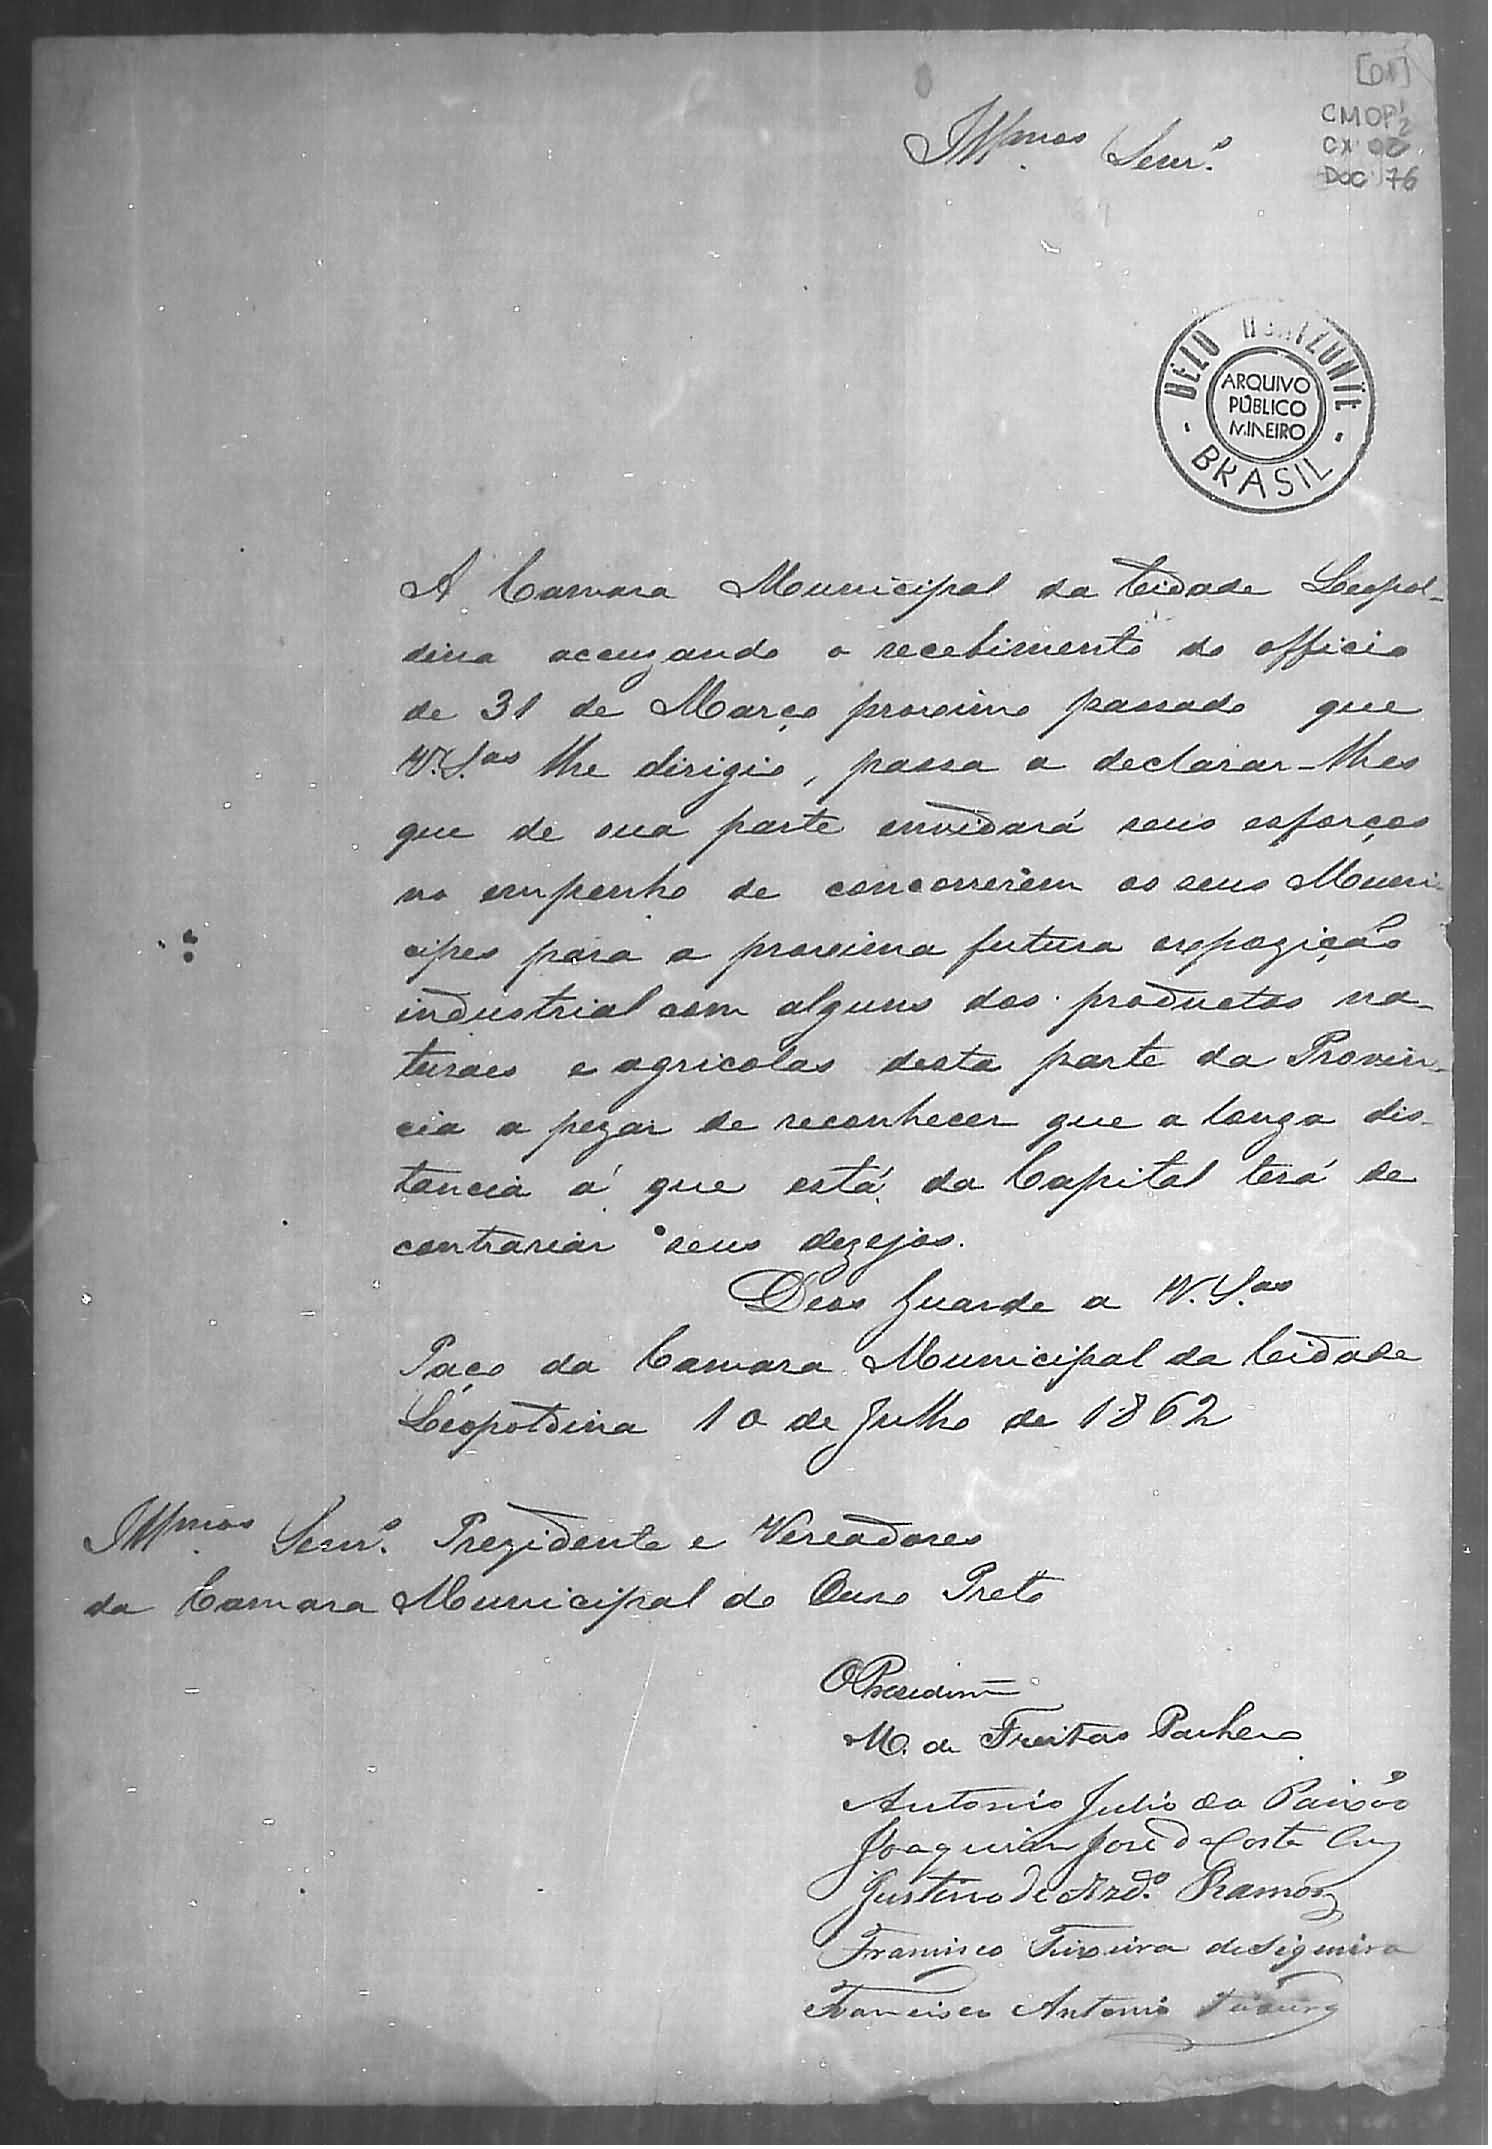 [01]
CMOP 1/2
CX
DOC 76
Illmos. Senr.s
BELO HORIZONTE
ARQUIVO
PÚBLICO
MINEIRO
BRASIL
A Camara Municipal da Cidade Leopol-
dina accuzando o recebimento do officio
de 31 de Março proximo passado que
V.V. S.as lhe dirigio, passa a declarar-lhes
que de sua parte envidará seus esforços
no empenho de concorrerem os seus Muni-
cipes para a proxima futura expozição
industrial com alguns dos productos na-
turaes e agricolas desta parte da Provin-
cia a pezar de reconhecer que a longa dis-
tancia á que está da Capital terá de
contrariar seus dezejos.
Deos Guarde a V.V. S.as
Paço da Camara Municipal da Cidade
Leopoldina 10 de Julho de 1862
Illmos. Senr.s Prezidente e Vereadores
da Camara Municipal do Ouro Preto
O Presidente
M. de Freitas Pacheco
Antonio Julio da Paixão
Joaquim José d Costa Cruz
Justino de Azd.o Ramos
Francisco Teixeira de Siqueira
Francisco Antonio